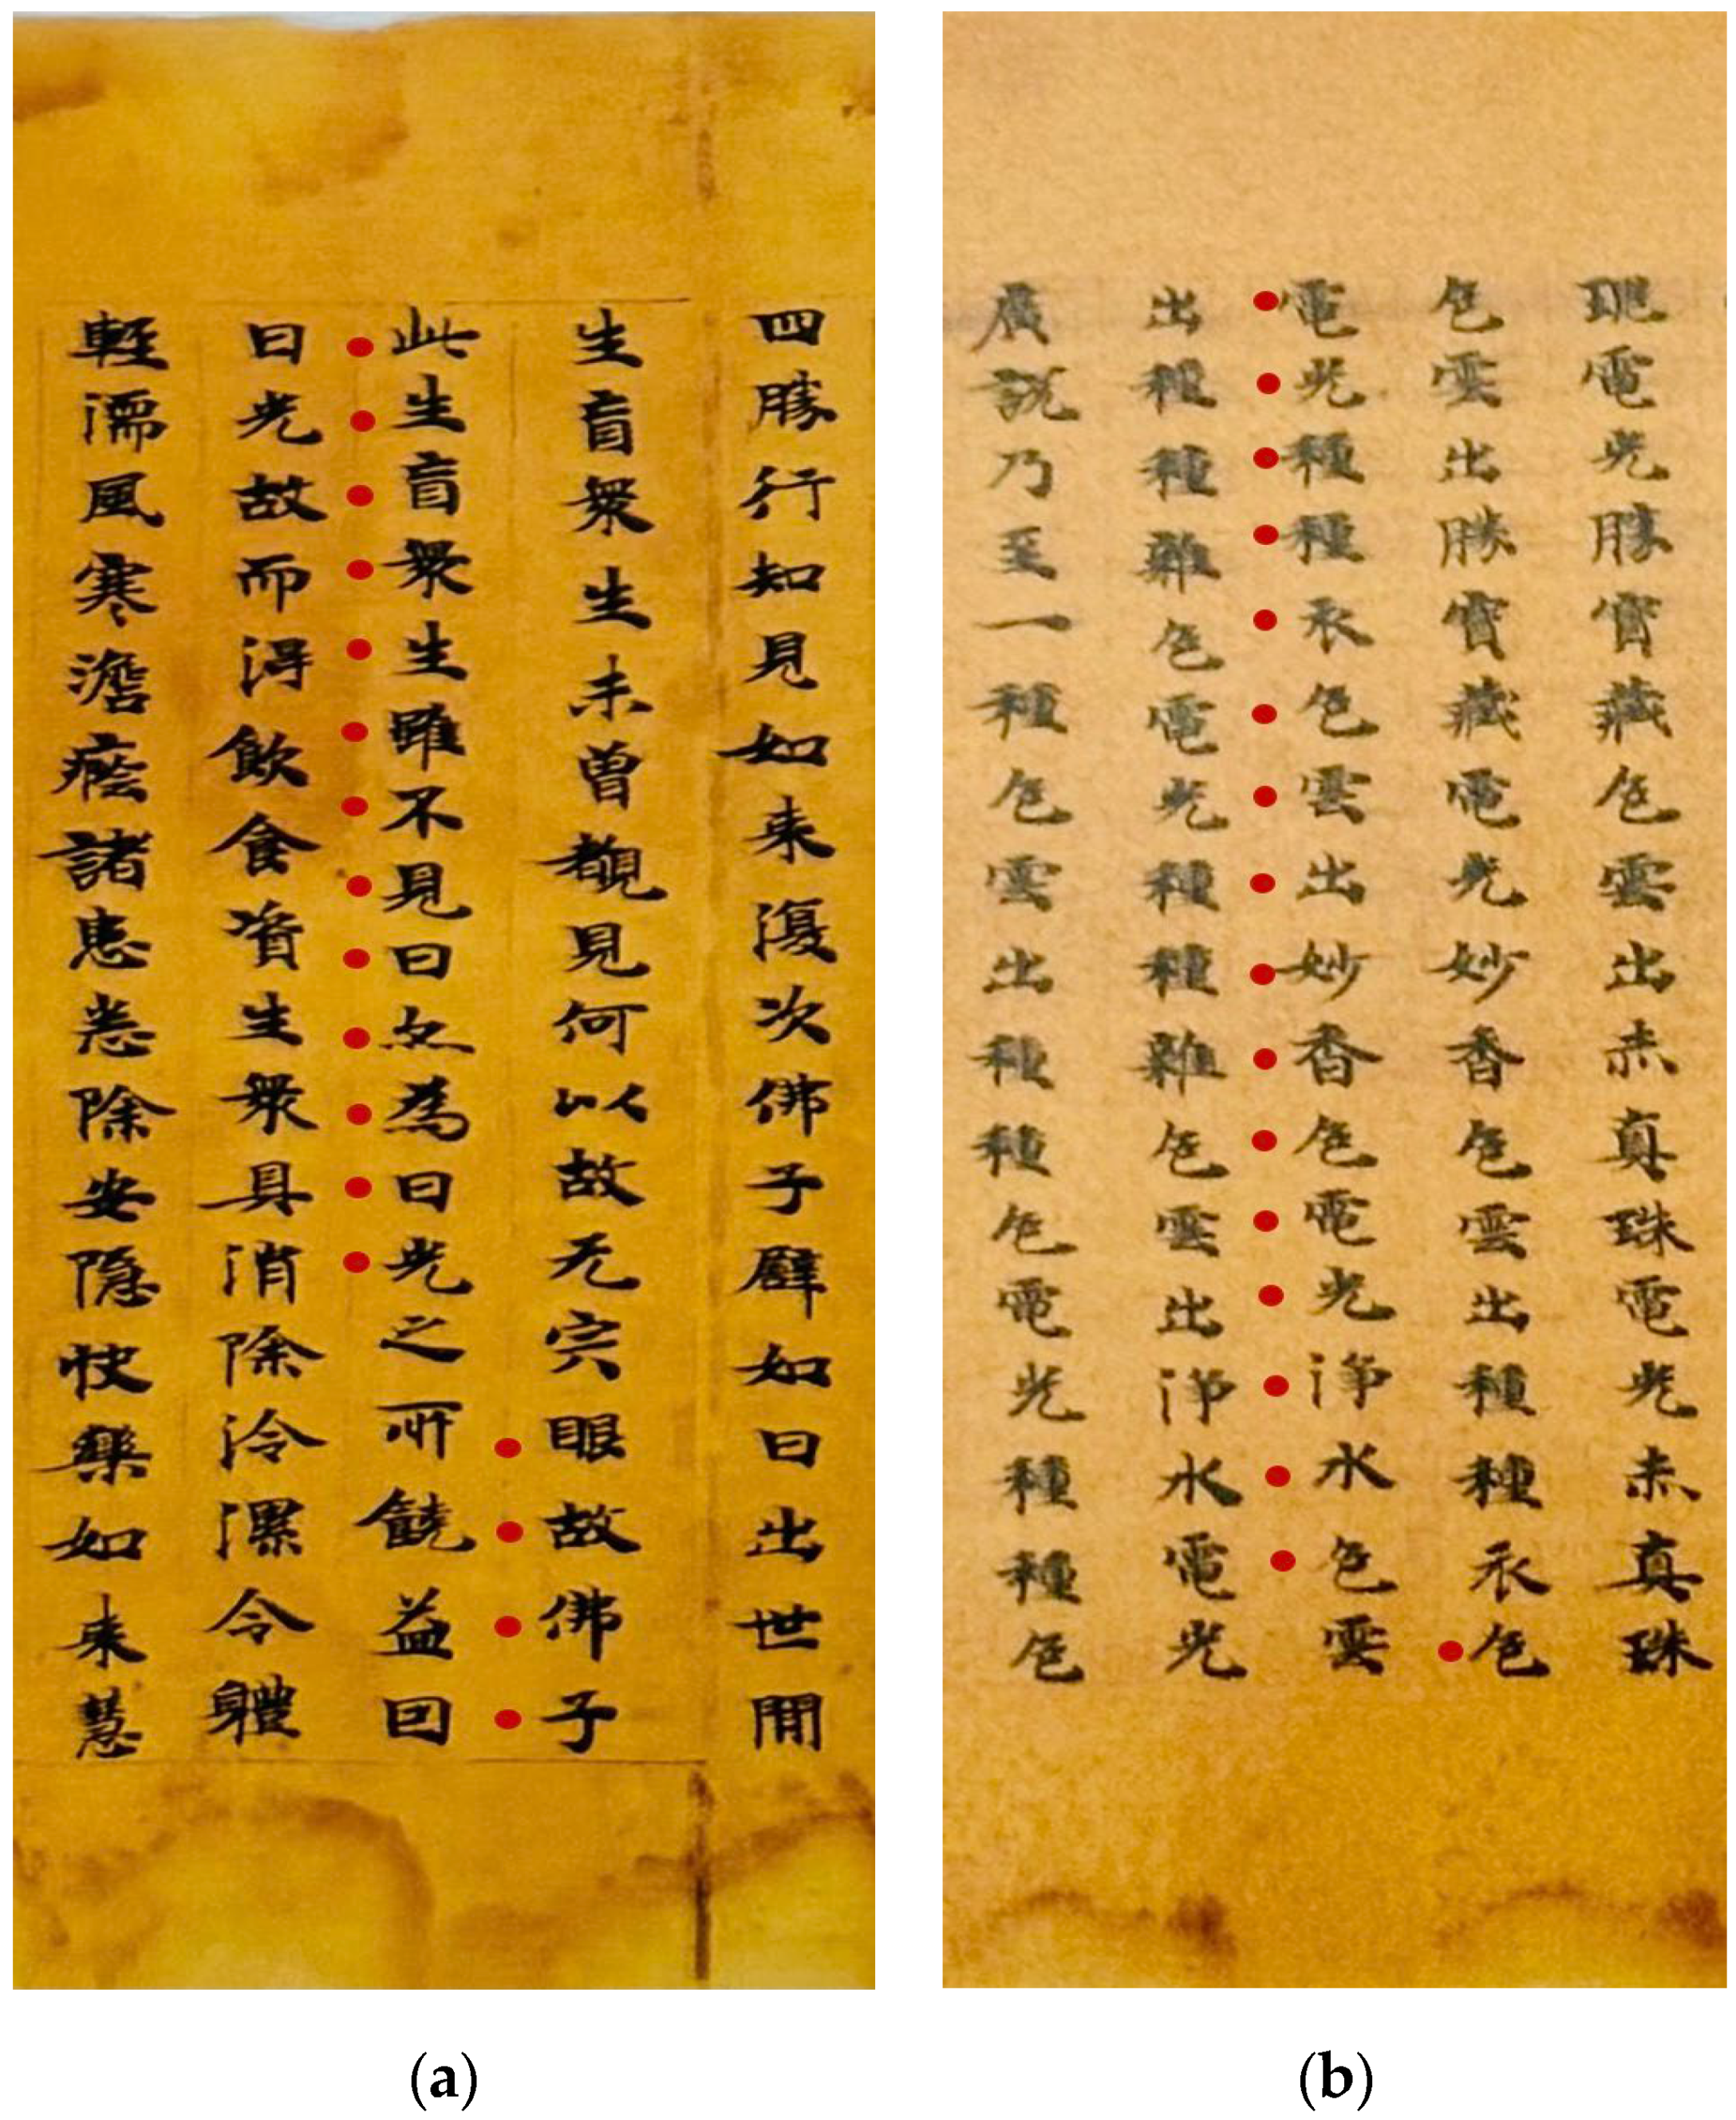 四勝行知見如来復次佛子譬如日出世間
生盲衆生未曽覩見何以故无宍眼故佛子
此生盲衆生雖不見日亦為日光之所饒益囙
日光故而淂飲食資生衆具消除冷漯令軆
軽濡風寒澹癊諸患悉除安隠快樂如来慧
(a)
電光勝寶藏色雲出赤真珠電光赤真珠
色雲出勝寶藏電光妙香色雲出種種衣色
電光種種衣色雲出妙香色電光淨水色雲
出種種雜色電光種種雜色雲出淨水電光
廣說乃至一種色雲出種種色電光種種色
(b)